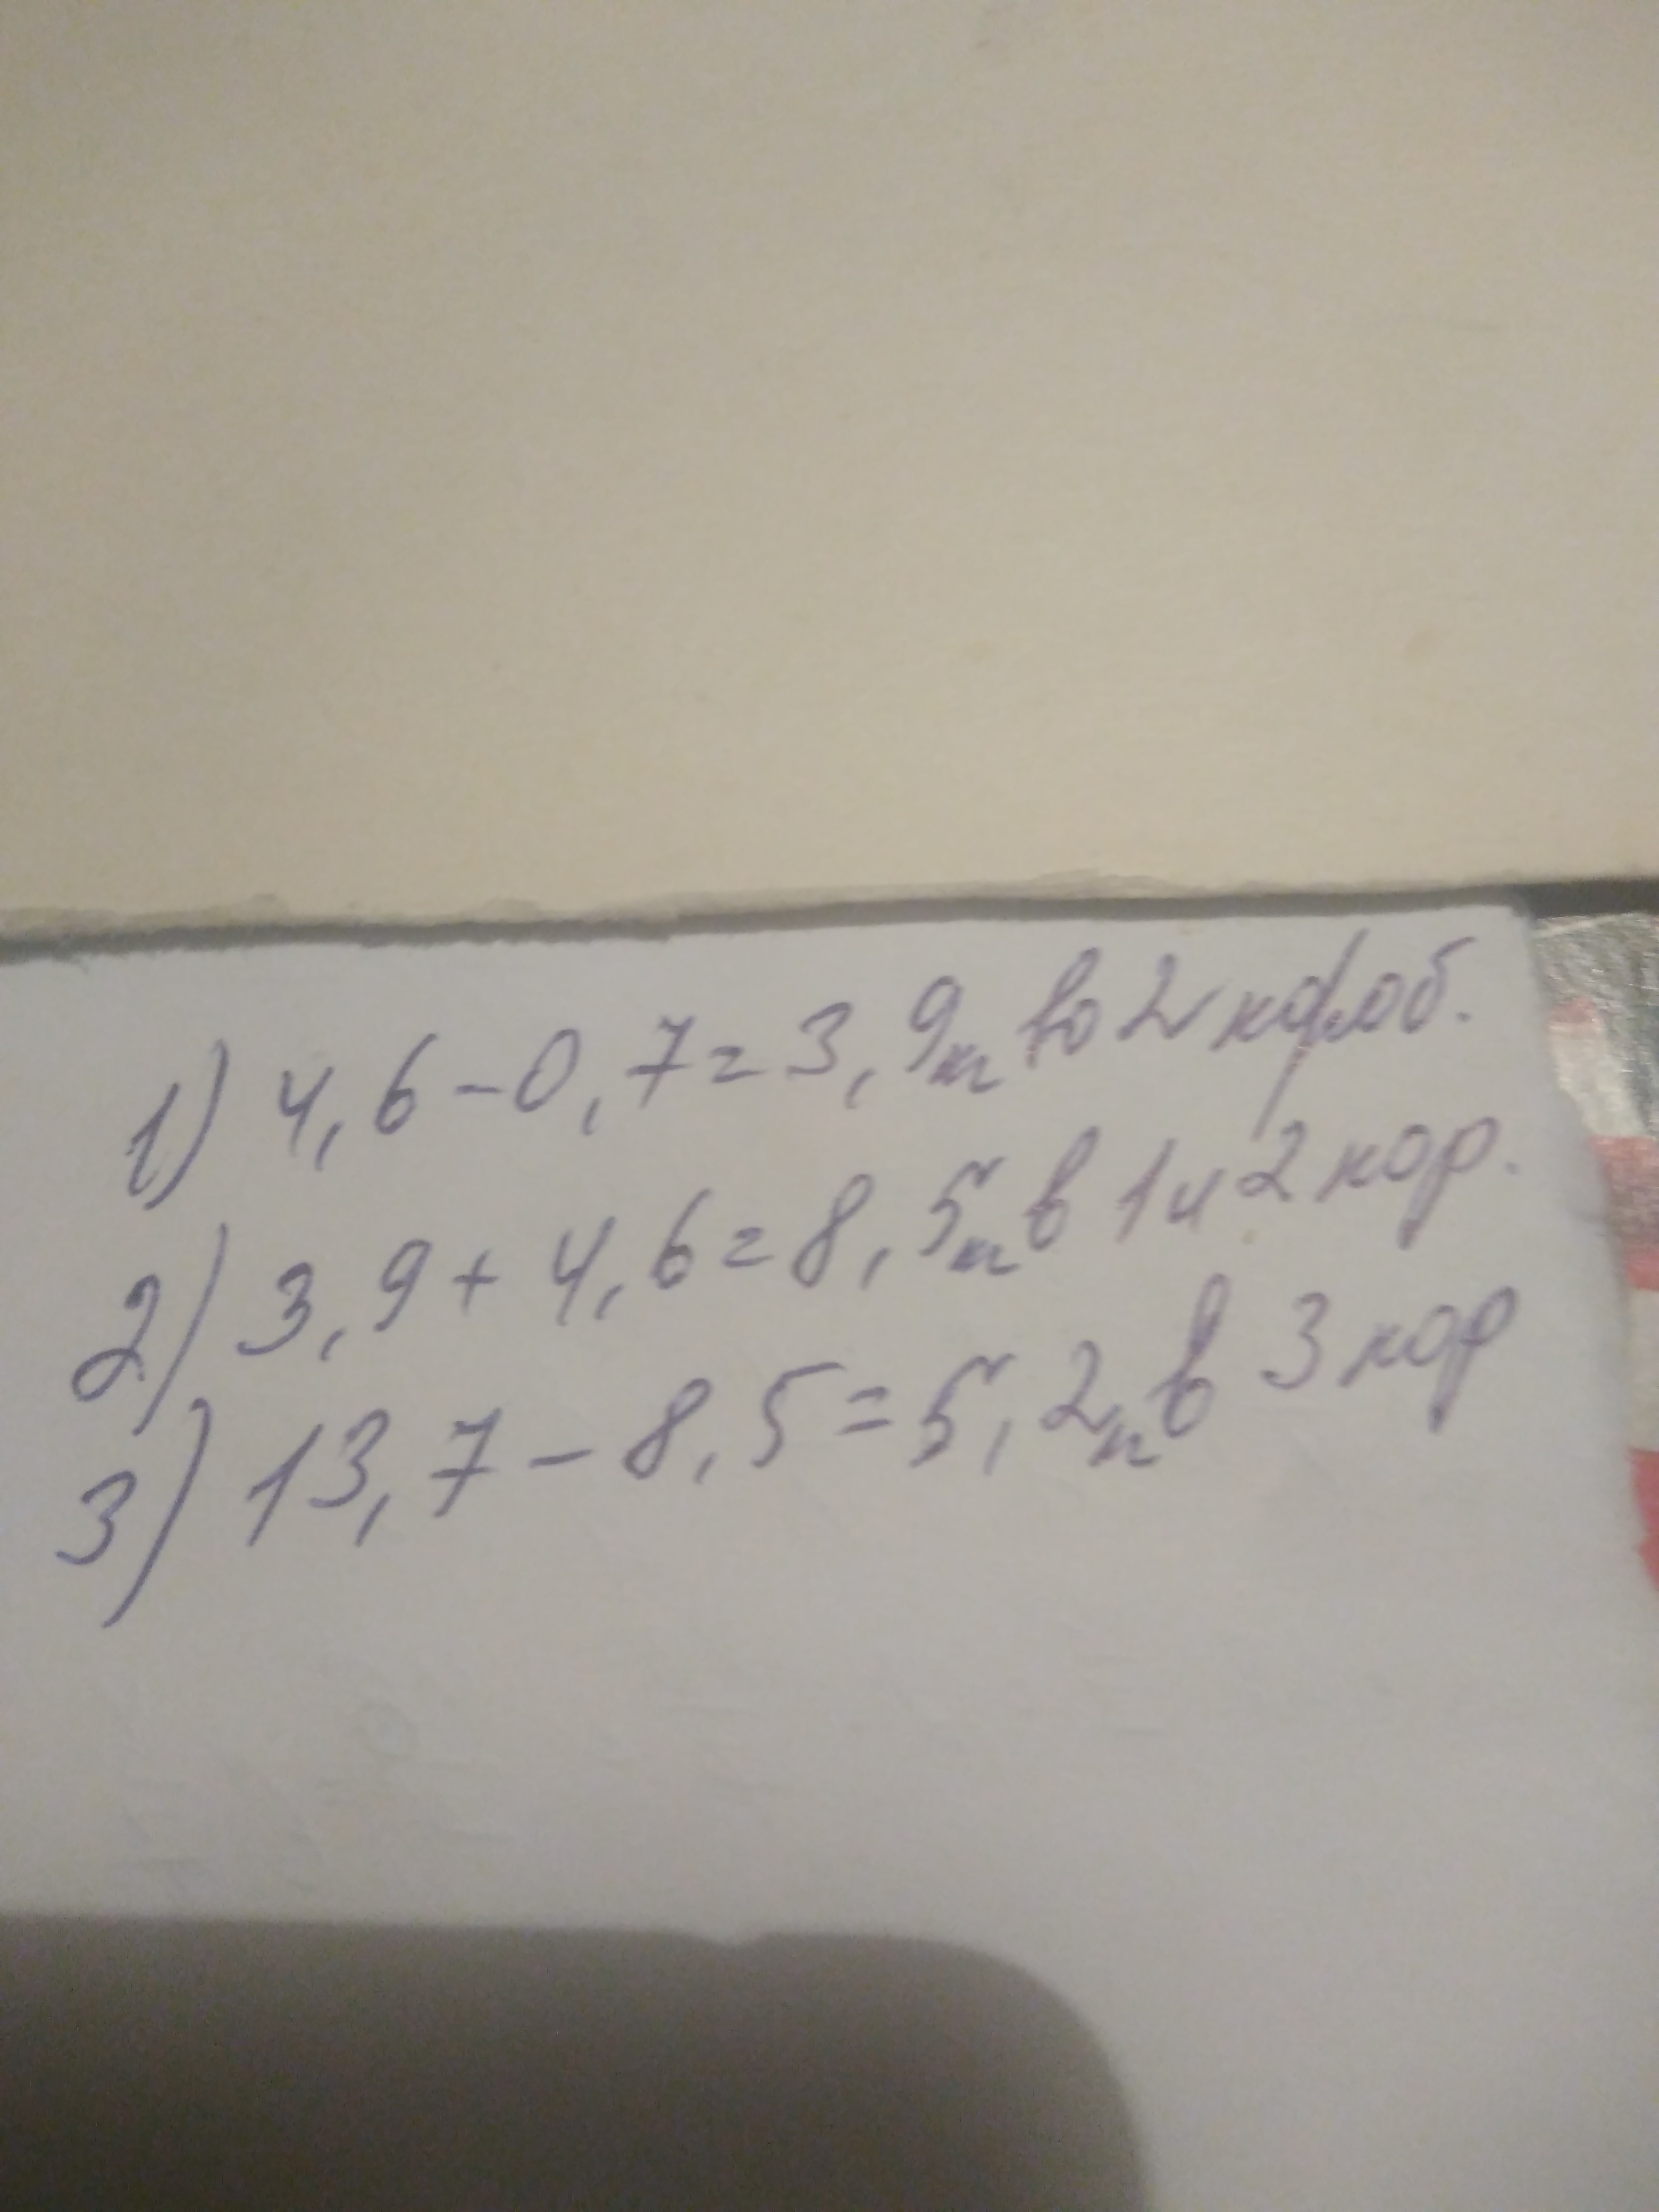 1) 4,6-0,7=3,9кг во 2 короб.
2) 3,9+4,6=8,5кг в 1 и 2 кор.
3) 13,7-8,5=5,2кг в 3 кор